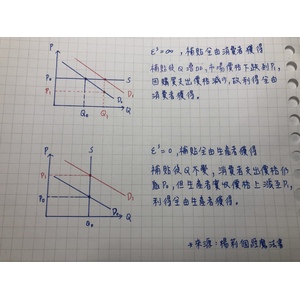 P
P₀
P₁
S
D₁
D₀
Q₀
Q₁
Q
εˢ=∞, 補貼全由消費者獲得
補貼從Q增
市場價格下跌到P₁
因購買支出價格減少, 故利得全由
消費者獲得。
P
P₁
P₀
S
D₁
D₀
Q₀
Q
εˢ=0, 補貼全由生產者獲得
補貼從Q不變, 消費者支出價格仍
為P₀, 但生產者實收價格上漲至P₁
利得全由生產者獲得。
→來源:楊莉個經魔法書